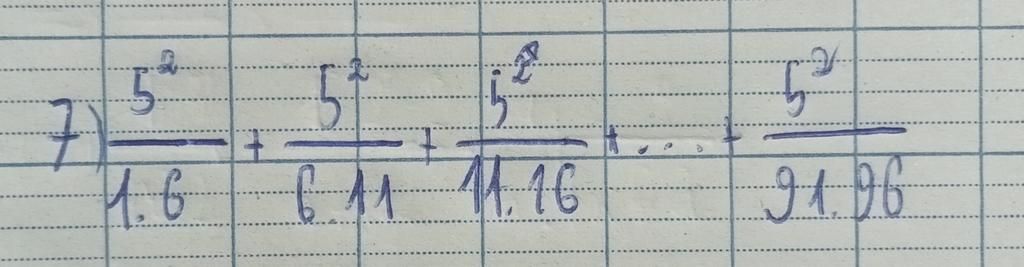 7) 5²/1.6 + 5²/6.11 + 5²/11.16 + .... + 5²/91.96